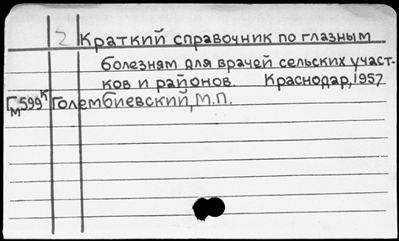 2 Краткий справочник по глазным
болезням для врачей сельских участ-
ков и районов. Краснодар, 1957
Гм599к Голембиевский, М.П.